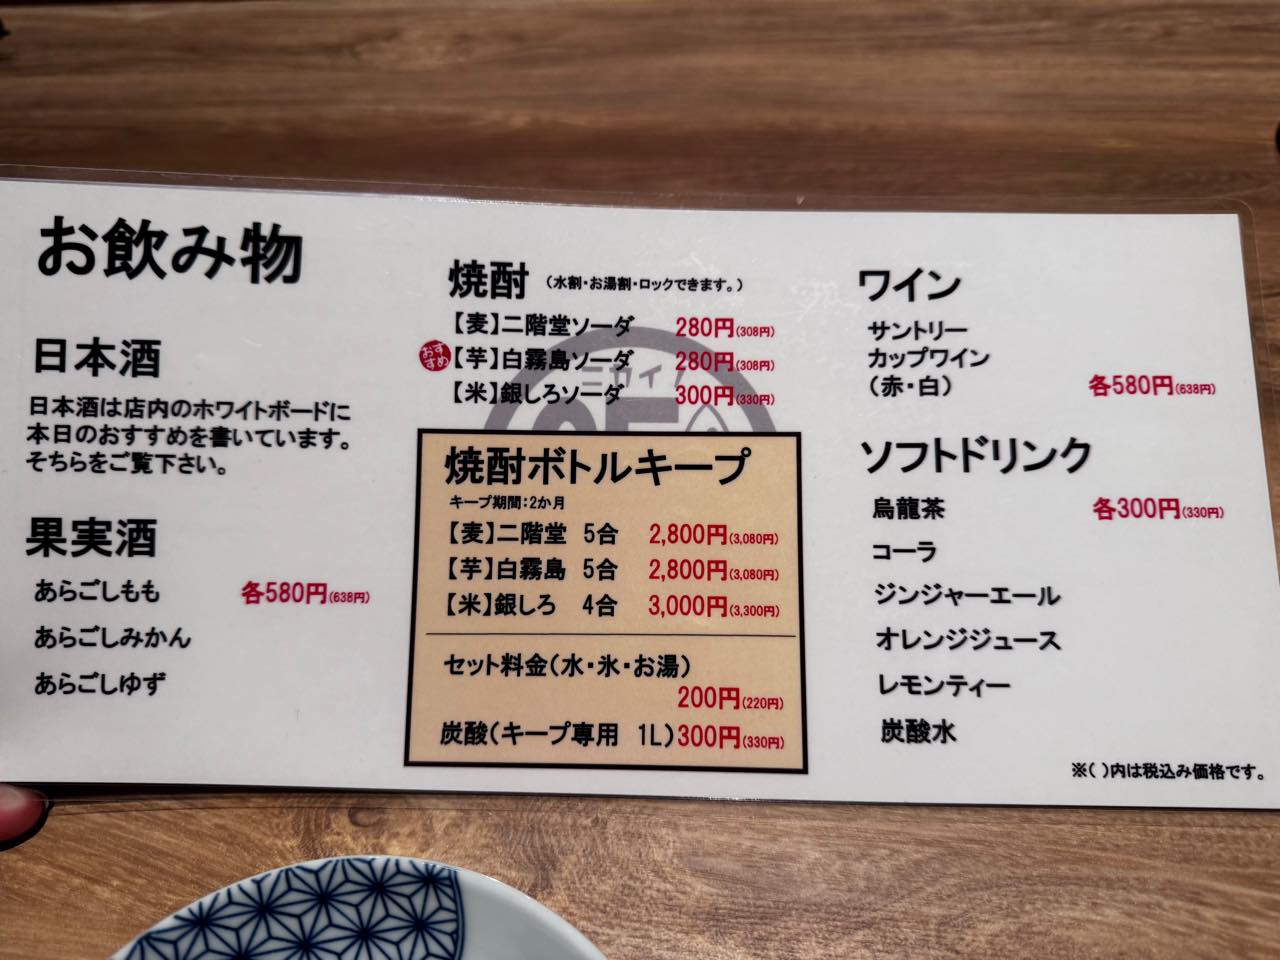 お飲み物
日本酒
日本酒は店内のホワイトボードに
本日のおすすめを書いています。
そちらをご覧下さい。
果実酒
あらごしもも 各580円(638円)
あらごしみかん
あらごしゆず
焼酎 (水割・お湯割・ロックできます。)
【麦】二階堂ソーダ 280円(308円)
おすすめ 【芋】白霧島ソーダ 280円(308円)
【米】銀しろソーダ 300円(330円)
ニカイ!
焼酎ボトルキープ
キープ期間:2か月
【麦】二階堂 5合 2,800円(3,080円)
【芋】白霧島 5合 2,800円(3,080円)
【米】銀しろ 4合 3,000円(3,300円)
セット料金(水・氷・お湯)
200円(220円)
炭酸(キープ専用 1L)300円(330円)
ワイン
サントリー
カップワイン
(赤・白) 各580円(638円)
ソフトドリンク
烏龍茶 各300円(330円)
コーラ
ジンジャーエール
オレンジジュース
レモンティー
炭酸水
※( )内は税込み価格です。